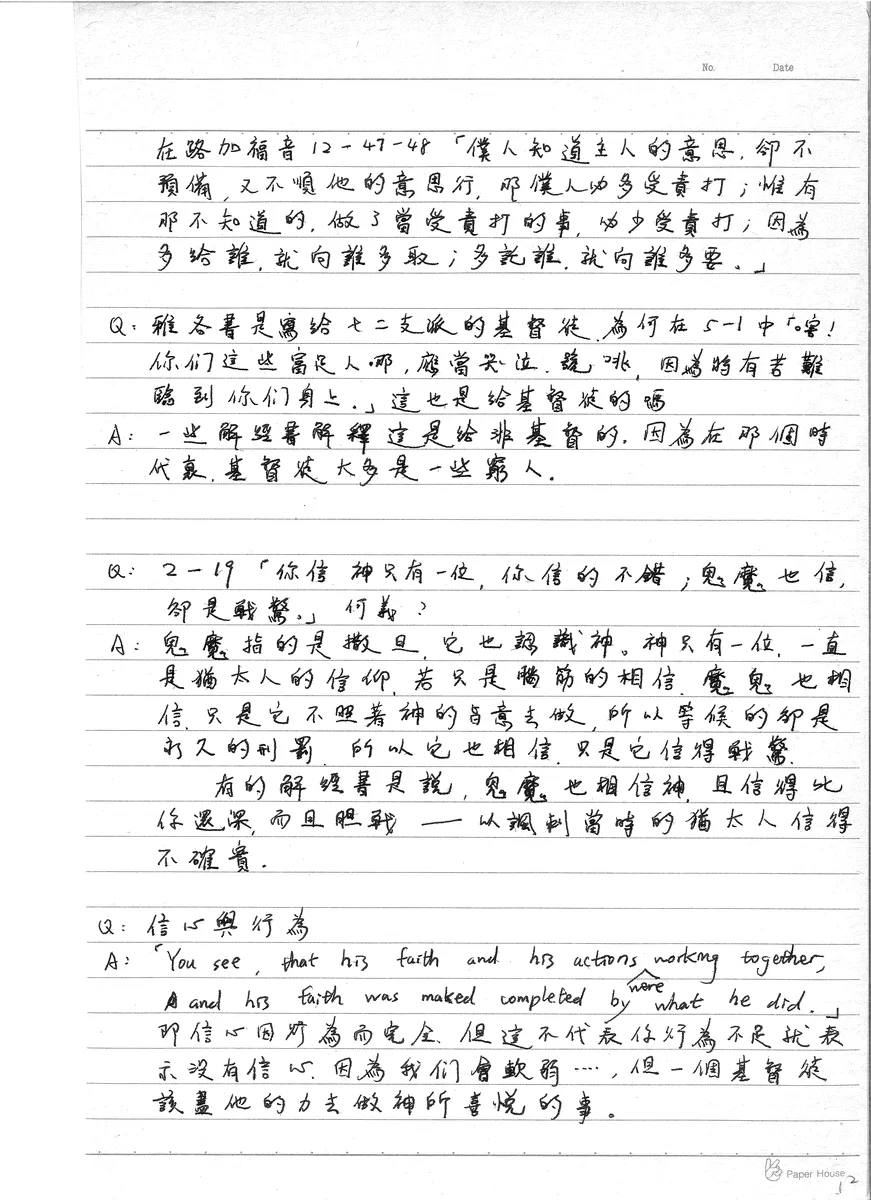 No.    Date
在路加福音12-47-48「僕人知道主人的意思,卻不
預備,又不順他的意思行,那僕人必多受責打;惟有
那不知道的,做了當受責打的事,必少受責打;因為
多給誰,就向誰多取;多託誰,就向誰多要。」
Q: 雅各書是寫給十二支派的基督徒,為何在5-1中「嗐!
你们這些富足人哪,應當哭泣、號咷,因為將有苦難
臨到你们身上.」這也是给基督徒的嗎
A: 一些解經書解釋這是给非基督的.因為在那個時
代裏,基督徒大多是一些窮人.
Q: 2-19「你信神只有一位,你信的不錯;鬼魔也信,
卻是戰驚。」何義?
A: 鬼魔指的是撒旦,它也認識神。神只有一位,一直
是猶太人的信仰,若只是腦筋的相信,魔鬼也相
信,只是它不照著神的旨意去做,所以等候的卻是
永久的刑罰,所以它也相信,只是它信得戰驚.
有的解經書是說,鬼魔也相信神,且信得比
你還深,而且胆戰——以諷刺當時的猶太人信得
不確實.
Q: 信心與行為
A: 「You see, that his faith and his actions were working together,
and his faith was maked completed by what he did.」
即信心因行為而完全、但這不代表你行為不足就表
示没有信心.因為我们會軟弱····,但一個基督徒
該盡他的力去做神所喜悅的事。
Paper House
12